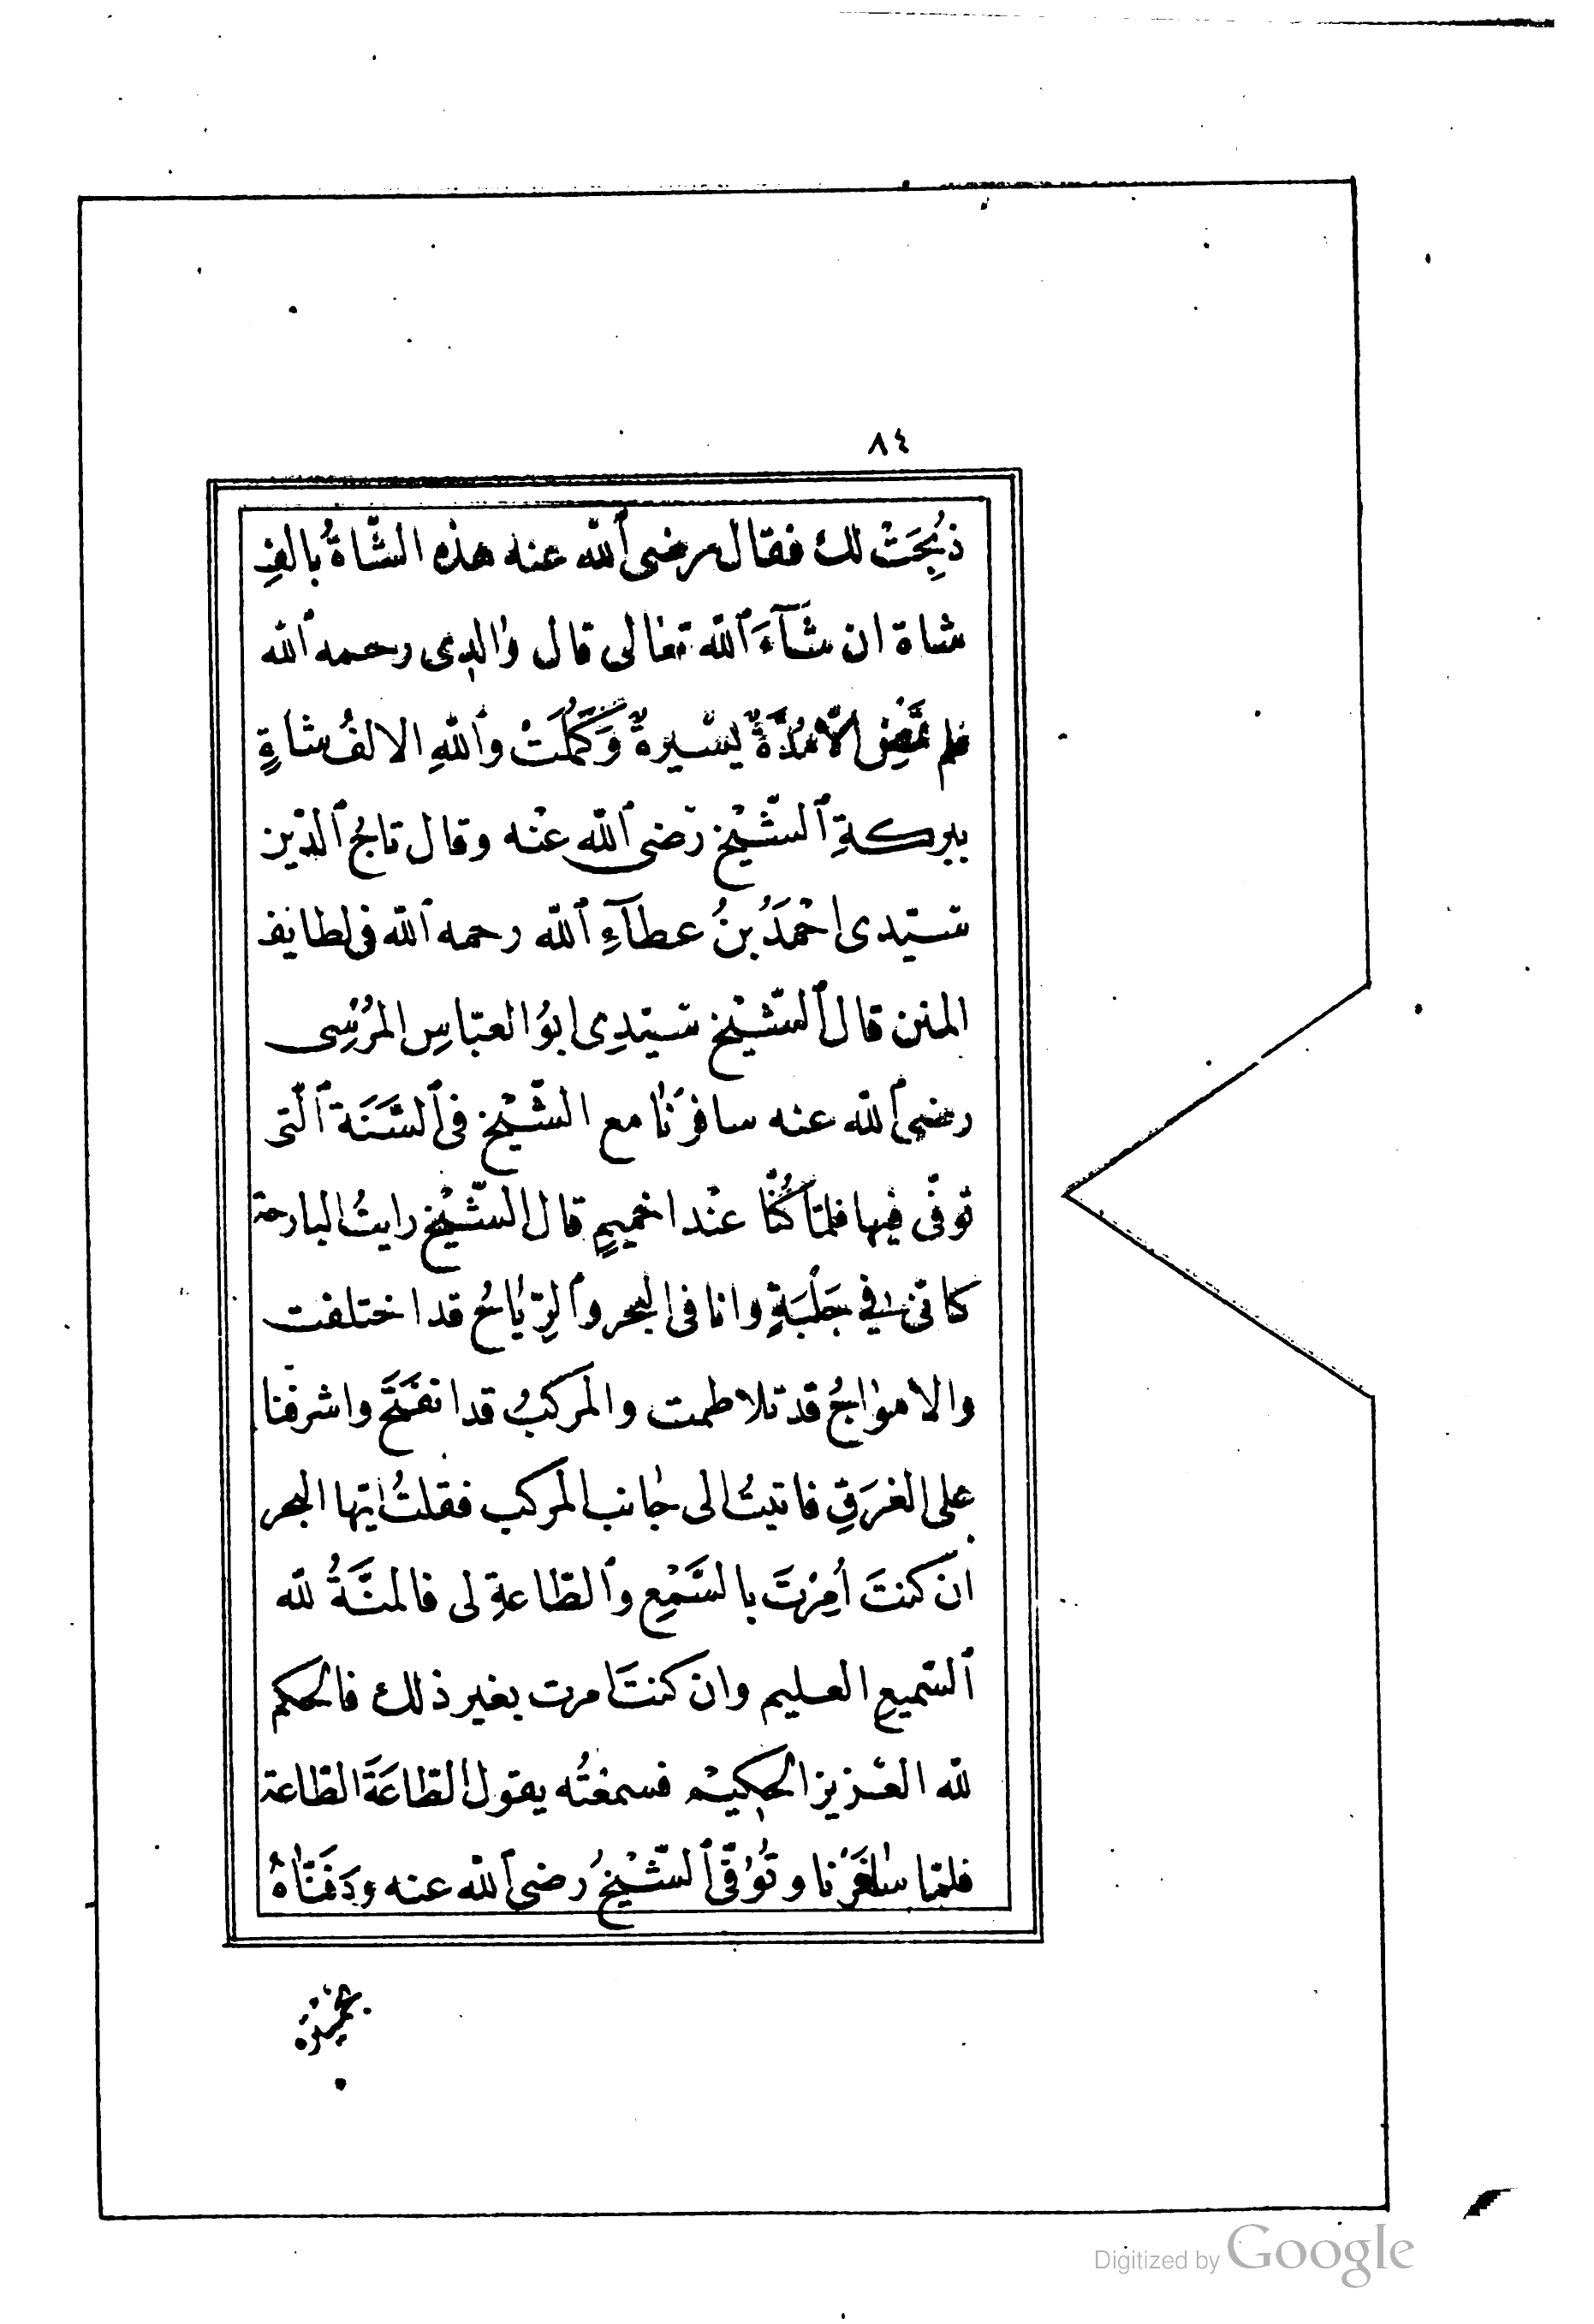 ٨٤
ذُبِحَتْ لك فقال رضى ٱلله عنه هذه الشّاةُ بالفِ
شاة ان شَآءَ ٱللّه تعٰالى قال وٰالدى رحمه ٱلله
فلم تمَضِ الّا مُدَّةٌ يسيرةٌ وَكَمُلَتْ وٱللّهِ الالفُ شاةٍ
ببركةِ ٱلشّيْخ رَضى ٱللّه عنْه وقال تاجُ ٱلدّين
سيّدى احْمَدُ بنُ عطآءِ ٱللّه رحمه ٱللّه فى لطايف
المنن قال ٱلشّيْخ سيّدِى ابوُ العبّاسِ المُرْسِى
رضى ٱللّه عنه سافرْنٰا مع الشّيْخ فى ٱلسَّنَة ٱلّتى
توُفّى فيها فلمّا كُنّا عنْد اخميمٍ قال الشّيْخ رايتُ البارحة
كانّى فى جَلْبَةٍ وانا فى البحر وٱلرّيٰاحُ قد اختلفت
والامواجُ قد تلاطمت والمركبُ قد انفتَحَ واشرفنا
على الغرَقِ فاتيتُ الى جٰانب المركب فقلتُ ايّها البحر
ان كنتَ اُمِرْتَ بالسَّمْعِ وٱلطّاعةِ لى فالمنَّةُ للّه
ٱلسّميعِ العليم وان كنتَ امرت بغير ذلك فالحكم
للّه العَزيز الحكيمْ فسمعْتُه يقول الطّاعَةَ الطّاعة
فلمّا سٰافَرْنا وتُوُفّى ٱلشّيْخُ رضى ٱللّه عنه ودَفَنّاهُ
بحُمَيْثرَه
Digitized by Google